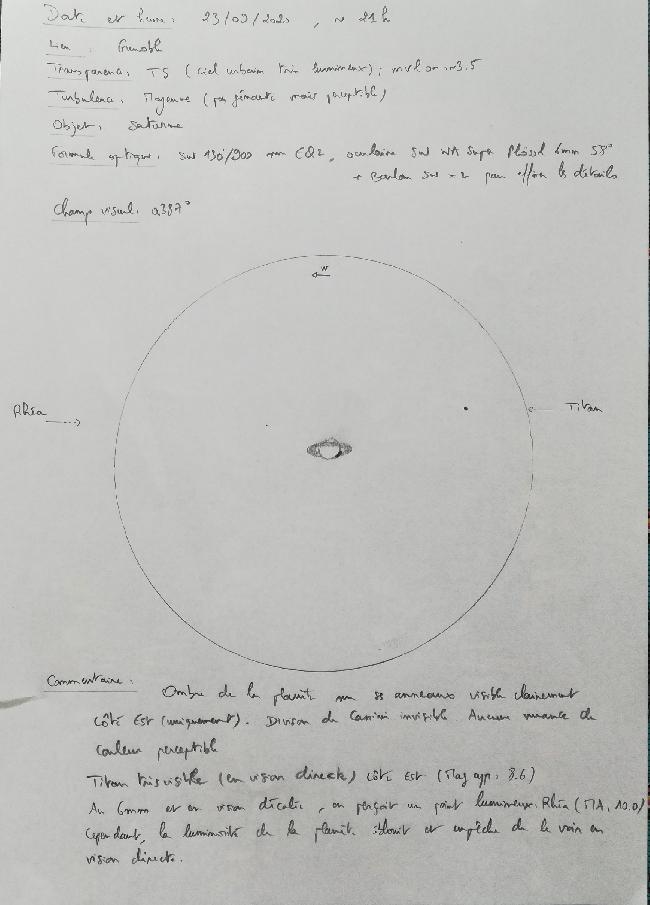 Date et heure : 23/09/2020 , ~ 21h
Lieu : Grenoble
Transparence : T5 (ciel urbain très lumineux) ; mvlon ~3.5
Turbulence : Moyenne (pas gênante mais perceptible)
Objet : Saturne
Formule optique : SW 130/900 mm EQ2, oculaire SW WA Super Plössl 6mm 58°
+ Barlow SW ×2 pour affiner les détails
Champ visuel : 0.387°
W
Rhéa
Titan
Commentaire :
Ombre de la planète sur ses anneaux visible clairement
côté Est (uniquement). Division de Cassini invisible. Aucune nuance de
couleur perceptible
Titan très visible (en vision directe) côté Est (Mag app. 8.6)
Au 6mm et en vision décalée, on perçoit un point lumineux. Rhéa (MA. 10.0)
Cependant, la luminosité de la planète éblouit et empêche de le voir en
vision directe.